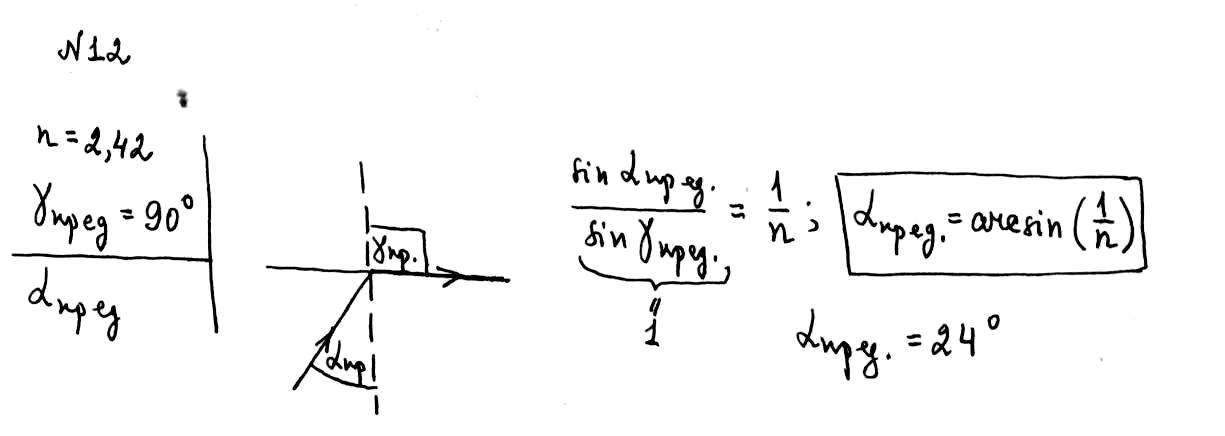 N12
n = 2,42
γпред = 90°
αпред
γпр.
αпр
sin αпред. / sin γпред. = 1/n ; αпред. = arcsin (1/n)
" 
1
αпред. = 24°